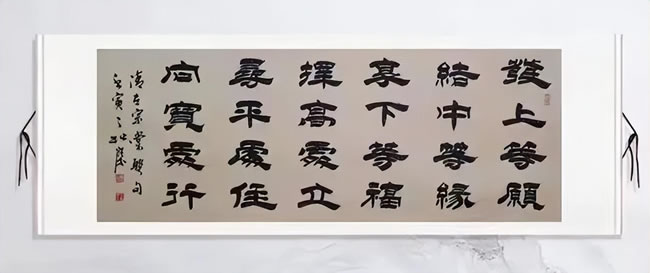 發上等願
結中等緣
享下等福
擇高處立
尋平處住
向寬處行
清左宗棠聯句
壬寅之